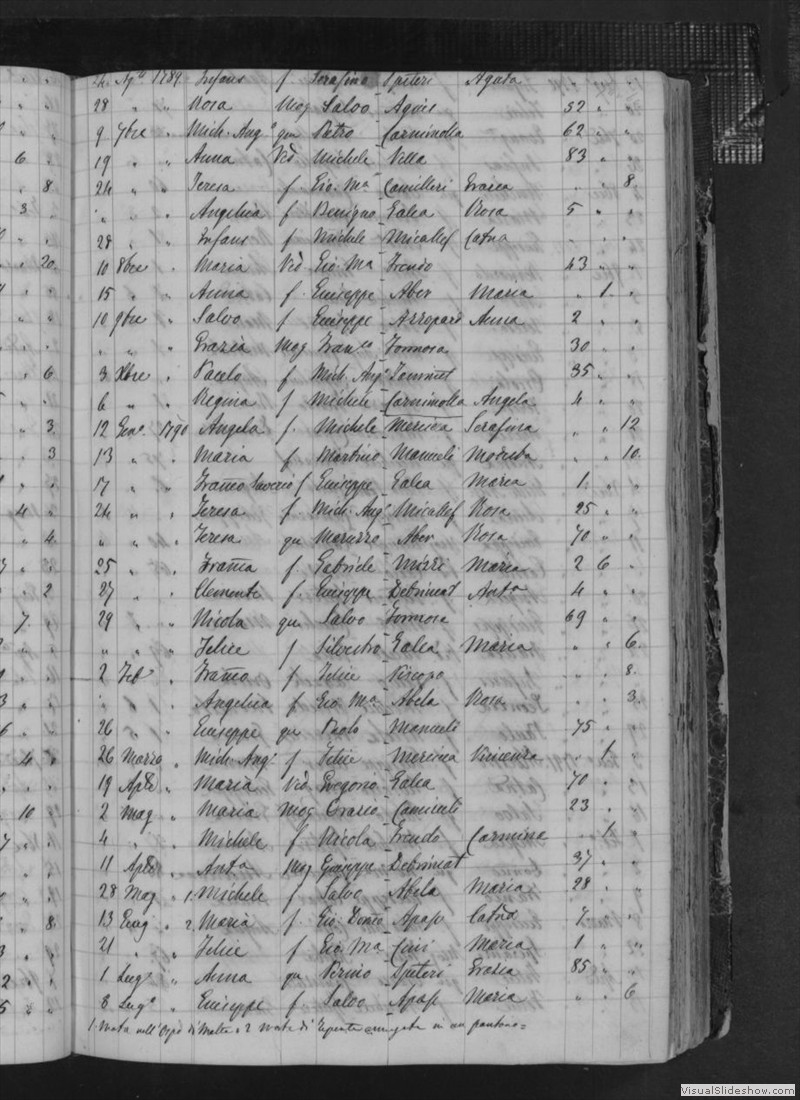 24 Ag.to 1789. Infans f Serafino Spiteri Agata
28 " " Rosa Mog Salvo Agius 32 " "
9 7bre " Mich. Ang.o qm Pietro Carminolla 62 " "
6 19 " " Anna Ved Michele Vella 83 " "
8. 24 " " Teresa f. Gio. Ma Camilleri Grazia " " 8.
3 " " " Angelica f Benigno Galea Rosa 5 " "
28 " " Infans f Michele Micallef Catna
20. 10 8bre " Maria Ved. Gio. Ma Grendo 43 " "
15 " " Anna f. Giuseppe Aber Maria " 1. "
10 9bre " Salvo f Giuseppe Azzopardi Anna 2 " "
" " " Grazia Mog Fran.co Formosa 30 " "
6 3 Xbre " Paolo f Mich. Ang.o Journet 35 " "
6 " " Regina f Michele Carminolla Angela 4 " "
3. 12 Gen.o 1790 Angela f. Michele Mercica Serafina " " 12
3 13 " " Maria f Martino Manueli Modesta " " 10.
17 " " Franco Saverio f Giuseppe Galea Maria 1. " "
4 24 " " Teresa f. Mich. Ang.o Micallef Rosa 25 " "
4. " " " Teresa qm Maruzzo Aber Rosa 70 " "
25 " " Franca f. Gabriele Mizzi Maria 2 6 "
2 27 " " Clemente f. Giuseppe Debrincat Anta 4 " "
7. 29 " " Nicola qm Salvo Formosa 69 " "
" " " Felice f Silvestro Galea Maria " " 6.
2 Feb " Franco f Felice Piscopo " " 8.
" " " Angelica f Gio. Ma Abela Rosa " " 3.
26 " " Giuseppe qm Paolo Manueli 75 " "
4 26 Marzo " Mich. Ang.o f Felice Mercieca Vincenza " 1 "
19 Aple " Maria Ved. Gregorio Galea 70 " "
10 2 Mag " Maria Mog Orazio Camilleri 23 " "
4 " " Michele f Nicola Grendo Carmina " 1. "
11 Aple " Anta Mog Giuseppe Debrincat 37 " "
28 Mag " 1. Michele f Salvo Abela Maria 28 " "
8 13 Giug " 2. Maria f. Gio. Domo Apap Catna 7. " "
21 " " Felice f Gio Ma Cini Maria 1 " "
1 Lug.o " Anna qm Pessino Spiteri Grazia 85 " "
8 Lug.o " Giuseppe f Salvo Apap Maria " " 6
1. morta nell' Osp.o di Malta = 2 morta di repente annegata in un pantano =
VisualSlideshow.com